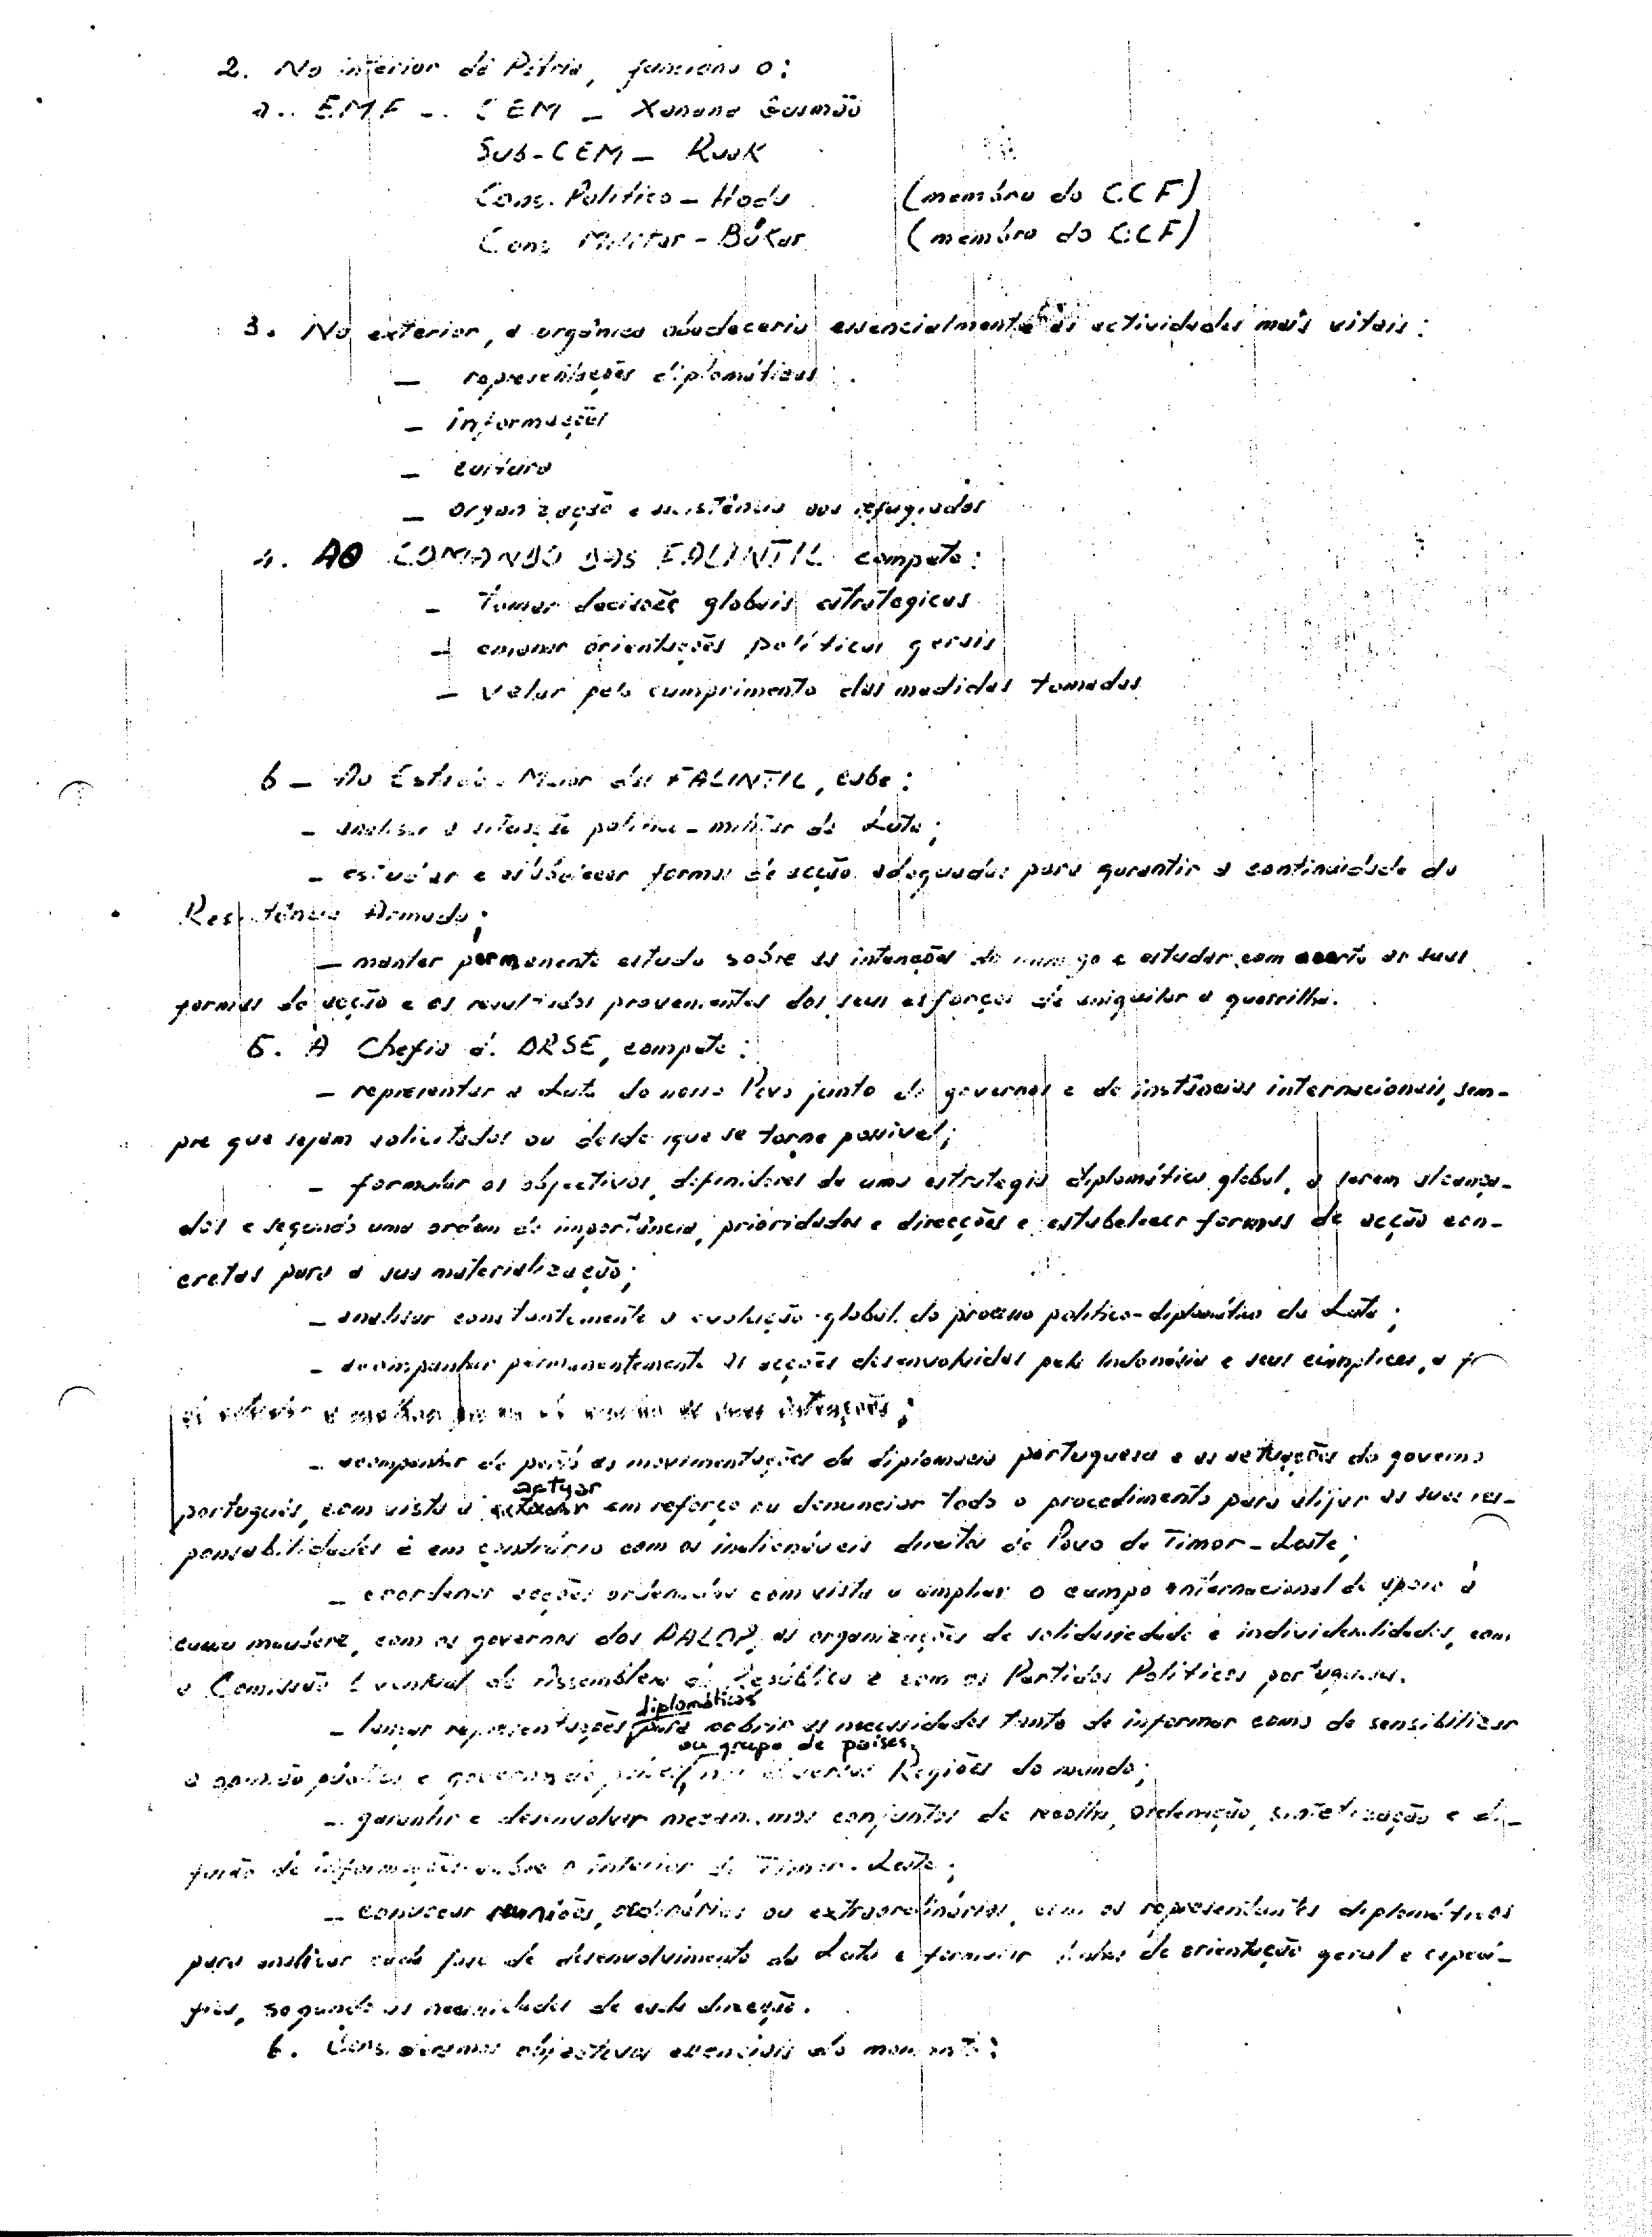 2. No interior da Pátria, funciona o:
a.. EMF -. CEM - Xanana Gusmão
Sub-CEM - Ruak
Cons. Político - Hodu (membro do CCF)
Cons Militar - Búkar (membro do CCF)
3. No exterior, a orgânica obedeceria essencialmente às actividades mais vitais:
- representações diplomáticas
- informações
- cultura
- organização e assistência aos refugiados
4. AO COMANDO DAS FALINTIL compete:
- tomar decisões globais estrategicas
- emanar orientações políticas gerais
- velar pelo cumprimento das medidas tomadas
b - Ao Estado-Maior das FALINTIL, cabe:
- analisar a situação político-militar da Luta;
- estudar e estabelecer formas de acção adequadas para garantir a continuidade da
Resistência Armada;
- manter permanente estudo sobre as intenções do inimigo e estudar com acerto as suas
formas de acção e os resultados provenientes dos seus esforços de aniquilar a guerrilha.
5. A Chefia da DRSE, compete:
- representar a Luta do nosso Povo junto de governos e de instâncias internacionais, sem-
pre que sejam solicitados ou desde que se torne possível;
- formular os objectivos, definidores de uma estrategia diplomática global, a serem alcança-
dos e segundo uma ordem de importância, prioridades e direcções e estabelecer formas de acção con-
cretas para a sua materialização;
- analisar constantemente a evolução global do processo político-diplomático da Luta;
- acompanhar permanentemente as acções desenvolvidas pela Indonésia e seus cúmplices, a
as suas intenções;
- acompanhar de perto as movimentações da diplomacia portuguesa e as actuações do governo
português, com vista a actuar em reforço ou denunciar todo o procedimento para alijar as suas res-
ponsabilidades e em contrário com os inalienáveis direitos do Povo de Timor-Leste;
- coordenar acções ordenadas com vista a ampliar o campo internacional de apoio à
causa maubere, com os governos dos PALOP, as organizações de solidariedade e individualidades, com
a Comissão Eventual da Assembleia da República e com os Partidos Políticos portugueses.
- lançar representações diplomáticas para cobrir as necessidades tanto de informar como de sensibilizar
ou grupo de países,
a opinião pública e governos de diversas Regiões do mundo;
- garantir e desenvolver mecanismos conjuntos de recolha, ordenação, sintetização e di-
fusão de informações sobre o interior de Timor-Leste;
- convocar reuniões, ordinárias ou extraordinárias, com os representantes diplomáticos
para analisar cada fase de desenvolvimento da Luta e formular linhas de orientação geral e especí-
fica, segundo as necessidades de cada direcção.
6. Consideramos objectivos essenciais do momento: